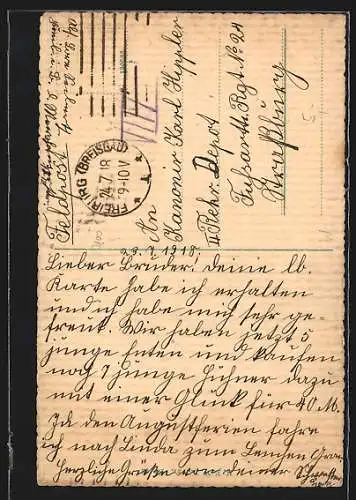 Feldpost
FREIBURG (BREISGAU)
24.7.18
9-10V
An
Kanonir Karl Hippler
II Rekr. Depot
Fußarth. Rgt. No 24
Straßburg
23.7.1918.
Lieber Bruder! Deine lb.
Karte habe ich erhalten
und ich habe mich sehr ge-
freut. Wir haben jetzt 5
junge Enten und kaufen
noch 7 junge Hühner dazu
mit einer Gluck für 40 M.
In den Augustferien fahre
ich nach Linda zum
Herzliche Grüße von deiner Schwester